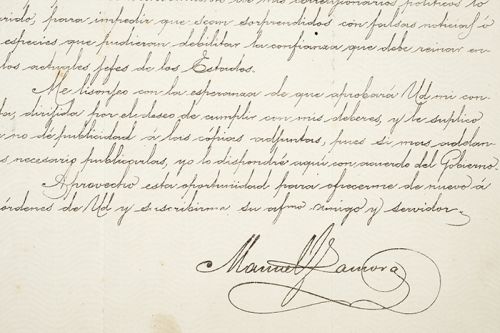 de mis correligionarios políticos lo
rido, para impedir que sean sorprendidos con falsas noticias ó
especies que pudieran debilitar la confianza que debe reinar en
los actuales jefes de los Estados.
Me lisonjeo con la esperanza de que aprobará Ud mi con
ta, dirijida por el deseo de cumplir con mis deberes, y le suplico
no dé publicidad á las cópias adjuntas, pues si mas adelan-
s necesario publicarlas, yo lo dispondré aquí con acuerdo del Gobierno.
Aprovecho esta oportunidad para ofrecerme de nuevo á
órdenes de Ud y suscribirme su afmo amigo y servidor
Manuel Zamora